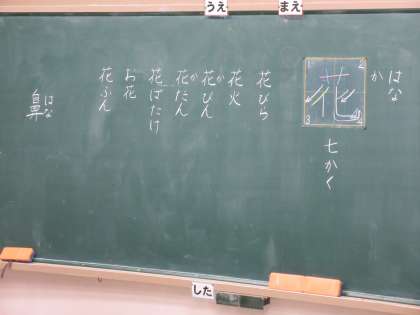 うえ
まえ
はな
か
花
1
2
3
4
七かく
花びら
花火
花びん
か
花だん
か
花ばたけ
お花
花ふん
鼻
はな
した